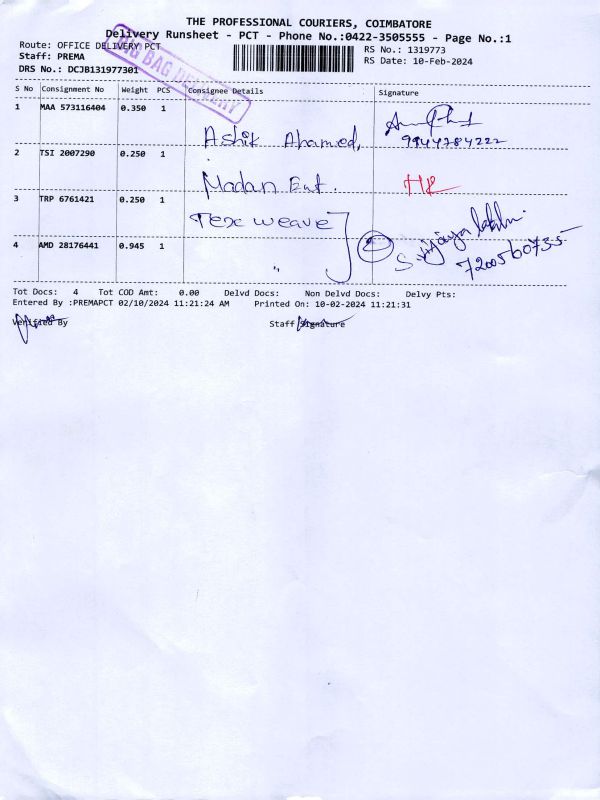 THE PROFESSIONAL COURIERS, COIMBATORE
Delivery Runsheet - PCT - Phone No.:0422-3505555 - Page No.:1
Route: OFFICE DELIVERY PCT
RS No.: 1319773
Staff: PREMA
RS Date: 10-Feb-2024
DRS No.: DCJB131977301
BIG BAG DELIVERY
S No Consignment No Weight PCS Consignee Details Signature
1 MAA 573116404 0.350 1
Ashik Ahamed,
9944784222
2 TSI 2007290 0.250 1
Madan Ent.
3 TRP 6761421 0.250 1
Texe weave
4 AMD 28176441 0.945 1
7200560735
Tot Docs: 4 Tot COD Amt: 0.00 Delvd Docs: Non Delvd Docs: Delvy Pts:
Entered By :PREMAPCT 02/10/2024 11:21:24 AM Printed On: 10-02-2024 11:21:31
Verified By Staff Signature